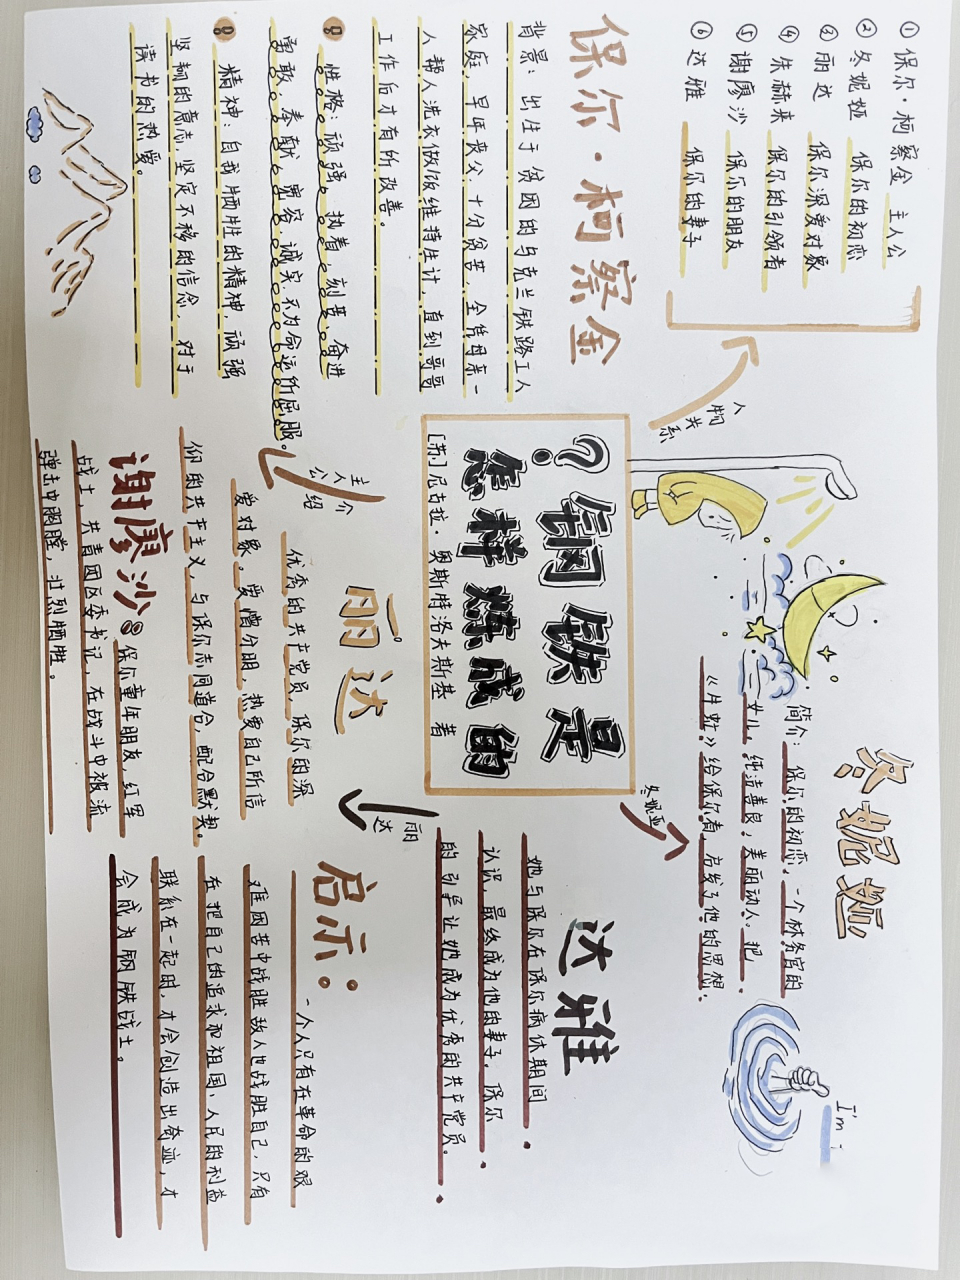 ①保尔·柯察金 主人公
②冬妮娅 保尔的初恋
③丽达 保尔深爱对象
④朱赫来 保尔的引领者
⑤谢廖沙 保尔的朋友
⑥达雅 保尔的妻子
人物关系
保尔·柯察金
背景：出生于贫困的乌克兰铁路工人
家庭，早年丧父，十分贫苦，全凭母亲一
人帮人洗衣做饭维持生计，直到哥哥
工作后才有所改善。
性格：顽强、执着、刻苦、奋进
勇敢、奉献、宽容、诚实、不为命运所屈服。
精神：自我牺牲的精神，顽强
坚韧的意志，坚定不移的信念，对于
读书的热爱。
?钢铁是
怎样炼成的
[苏]尼古拉·奥斯特洛夫斯基 著
主人公介绍
冬妮娅
简介：保尔的初恋，一个林务官的
女儿，纯洁善良，美丽动人。把
《牛虻》给保尔看，启发了他的思想。
冬妮亚
I'm
丽达
优秀的共产党员，保尔的深
爱对象。爱憎分明，热爱自己所信
仰的共产主义，与保尔志同道合，配合默契。
丽达
谢廖沙：保尔童年朋友，红军
战士，共青团区委书记，在战斗中被流
弹击中胸膛，壮烈牺牲。
达雅
她与保尔在保尔病休期间
认识，最终成为他的妻子。保尔
的引导让她成为优秀的共产党员。
启示：
一个人只有在革命的艰
难困苦中战胜敌人也战胜自己，只有
在把自己的追求和祖国、人民的利益
联系在一起时，才会创造出奇迹，才
会成为钢铁战士。